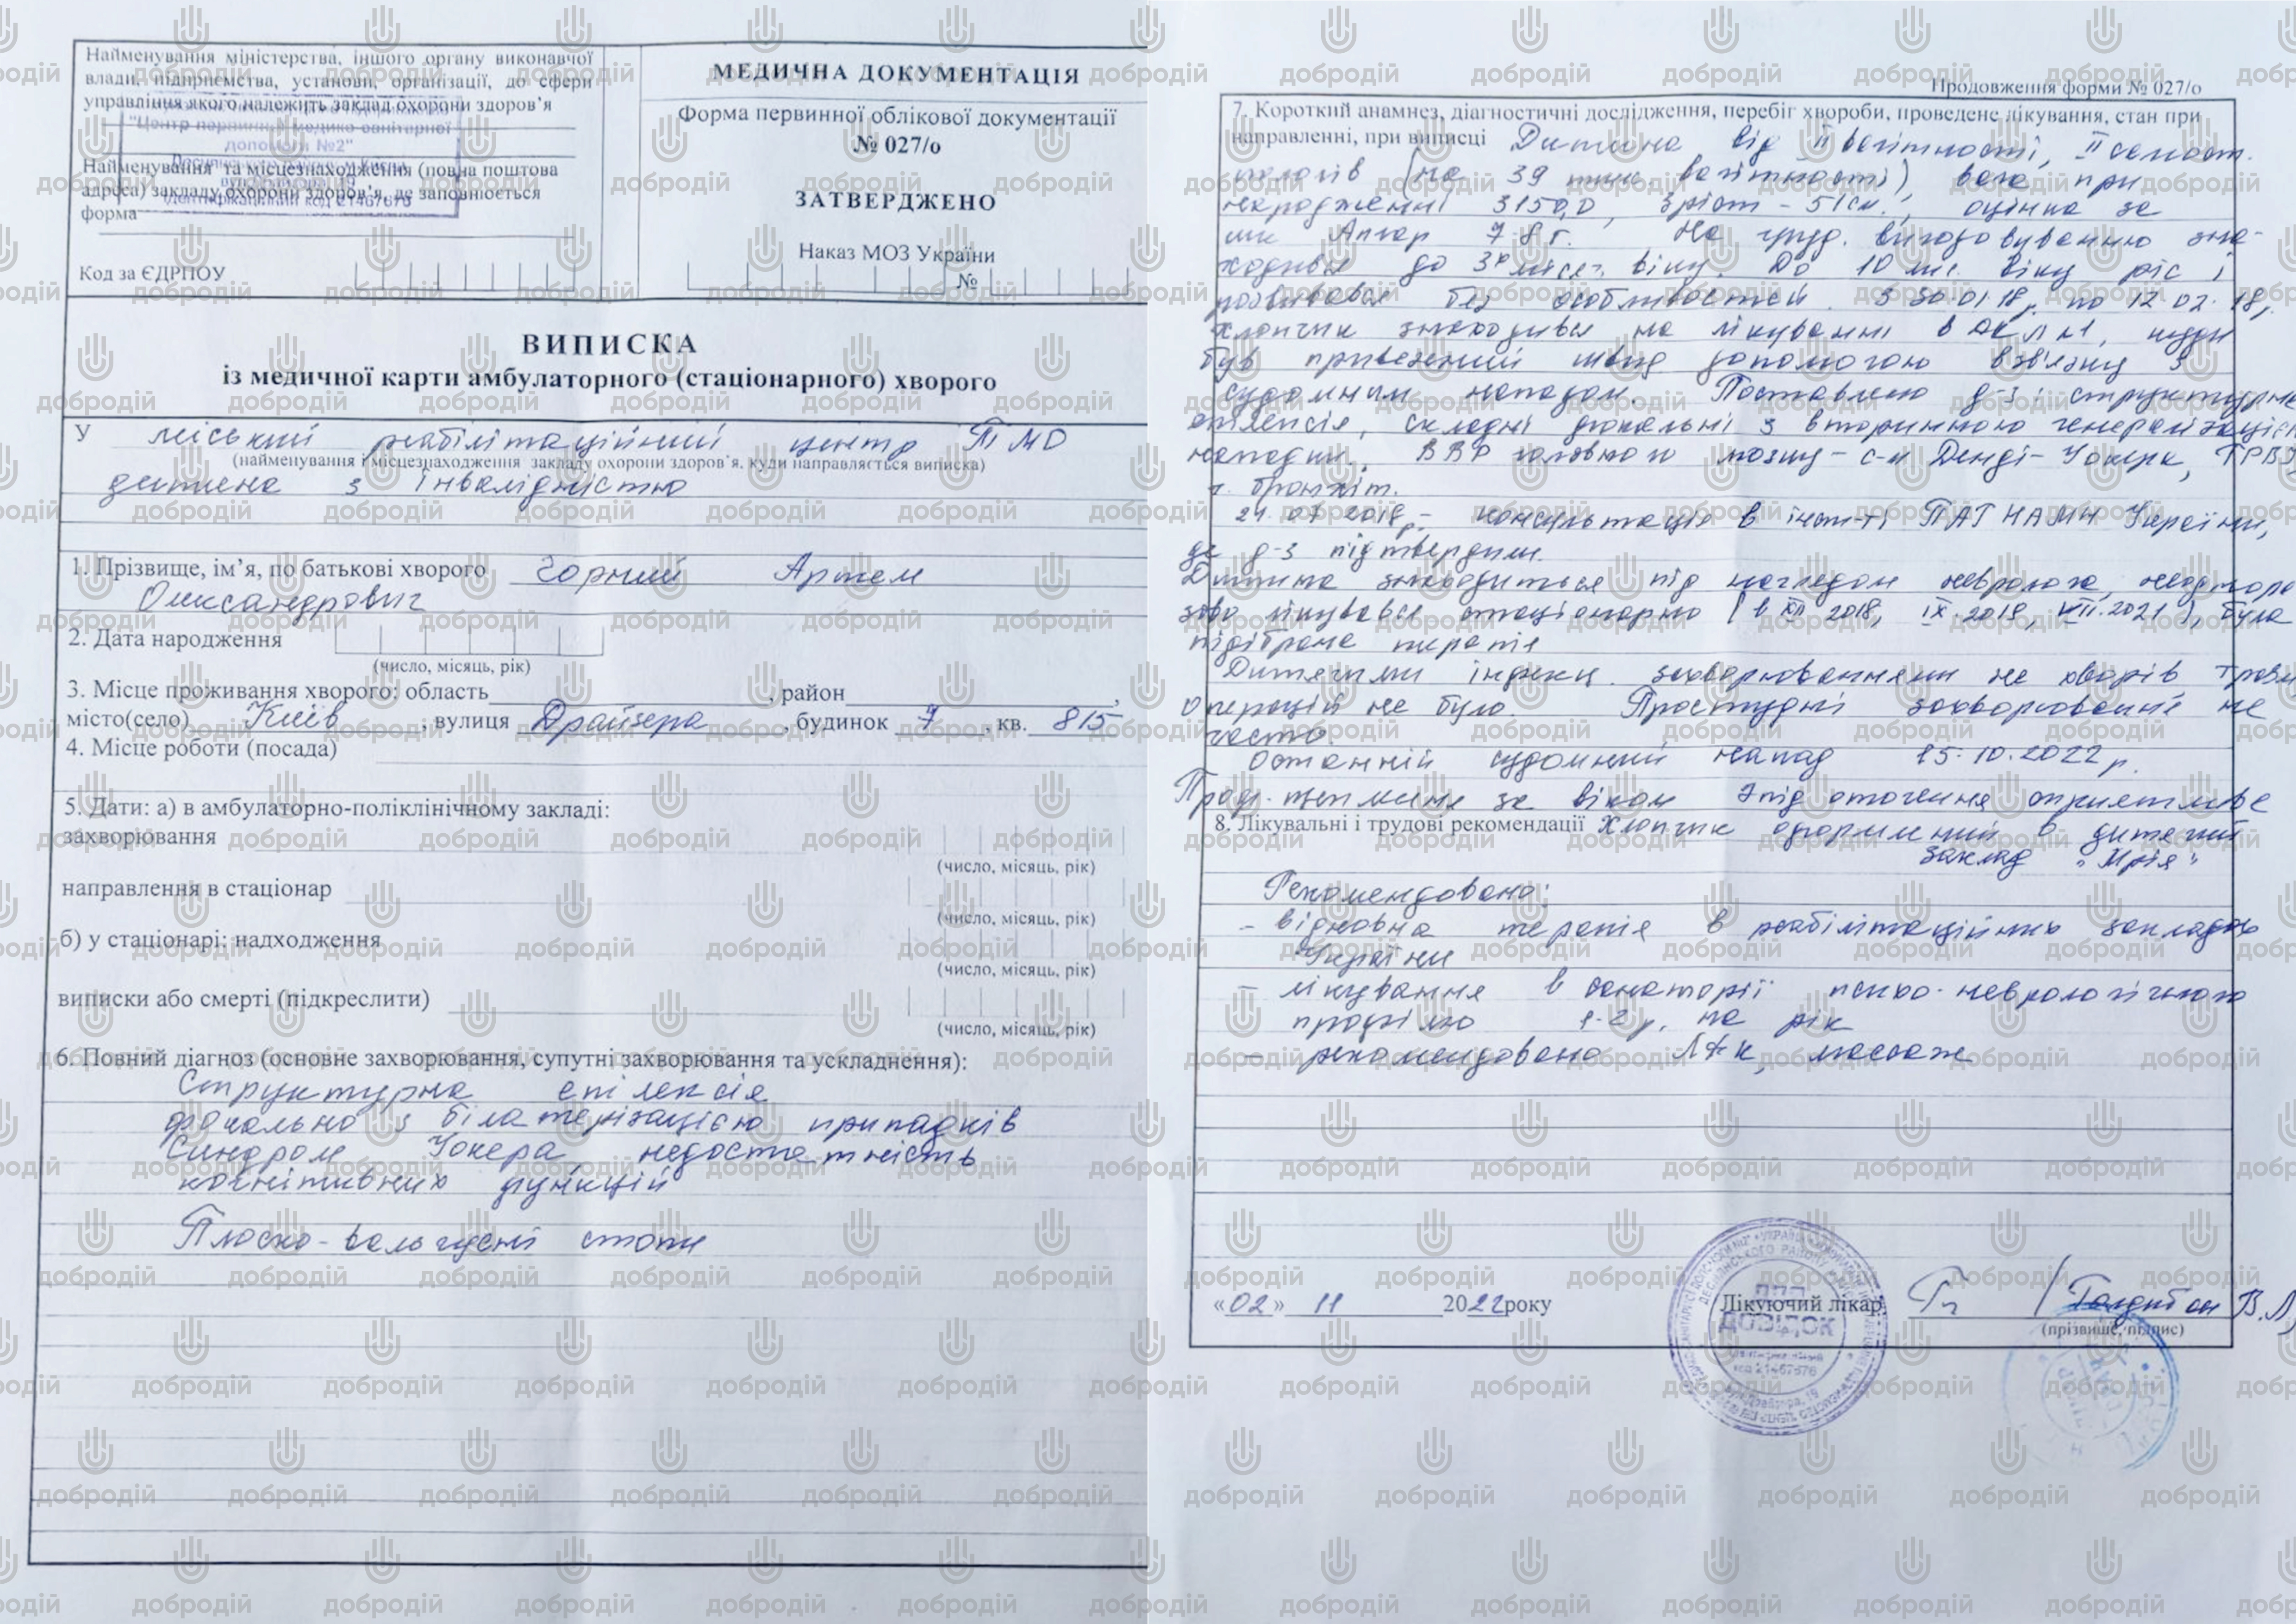 Найменування міністерства, іншого органу виконавчої
влади, підприємства, установи, організації, до сфери
управління якого належить заклад охорони здоров'я
"Центр первинної медико-санітарної
допомоги №2"
Ідентифікаційний код 21467676
Найменування та місцезнаходження (повна поштова
адреса) закладу охорони здоров'я, де заповнюється
форма
Код за ЄДРПОУ
МЕДИЧНА ДОКУМЕНТАЦІЯ
Форма первинної облікової документації
№ 027/о
ЗАТВЕРДЖЕНО
Наказ МОЗ України
№
ВИПИСКА
із медичної карти амбулаторного (стаціонарного) хворого
У міський реабілітаційний центр ПМД
(найменування і місцезнаходження закладу охорони здоров'я, куди направляється виписка)
дитина з інвалідністю
1. Прізвище, ім'я, по батькові хворого Чорний Артем
Олександрович
2. Дата народження
(число, місяць, рік)
3. Місце проживання хворого: область , район ,
місто(село) Київ , вулиця Драйзера , будинок 7 , кв. 815
4. Місце роботи (посада)
5. Дати: а) в амбулаторно-поліклінічному закладі:
захворювання
(число, місяць, рік)
направлення в стаціонар
(число, місяць, рік)
б) у стаціонарі: надходження
(число, місяць, рік)
виписки або смерті (підкреслити)
(число, місяць, рік)
6. Повний діагноз (основне захворювання, супутні захворювання та ускладнення):
Структурна епілексія
фокально з білатерізацією припадків
Синдром Уокера недостатність
когнітивних функцій
Плоско-вальгусні стопи
Продовження форми № 027/о
7. Короткий анамнез, діагностичні дослідження, перебіг хвороби, проведене лікування, стан при
направленні, при виписці Дитина від ІІ вагітності, ІІ самост.
пологів (на 39 тижн. вагітності), вага при
народженні 3150,0, зріст - 51см., оцінка за
шк Апгар 7-8 б. На груд. вигодовуванню зна-
ходився до 3х міс. віку. До 10 міс. віку ріс і
розвивався без особливостей. З 30.01.18р по 12.02.18р.
хлопчик знаходився на лікуванні в ДКЛ №1, куди
був привезений швид допомогою в зв'язку з
судомним нападом. Поставлено д-з: структурна
епілепсія, складні фокальні з вторинною генералізацією
напади. ВВР головного мозку - с-м Денді-Уокера, ГРВІ
г. бронхіт.
07 2018р - консультація в інст-ті ПАГ НАМН України,
де д-з підтвердили.
Дитина знаходиться під наглядом невролога, неоднора
зово лікувався стаціонарно (в XII 2018, IX.2019, VII.2021), була
підібрана терапія
Дитячими інфекц. захворюваннями не хворів травм
операцій не було. Простудні захворювання не
часто.
Останній судомний напад 15.10.2022р.
Проф. щеплення за віком Епід оточення сприятливе
8. Лікувальні і трудові рекомендації Хлопчик оформлений в дитячий
заклад "Мрія"
Рекомендовано:
- відновна терапія в реабілітаційних закладах
України
- лікування в санаторії психо-неврологічного
профілю 1-2 р. на рік
- рекомендовано ЛФК, массаж
«02» 11 2022року
Лікуючий лікар
(прізвище, підпис)
ДЛЯ
ДОВІДОК
добродій